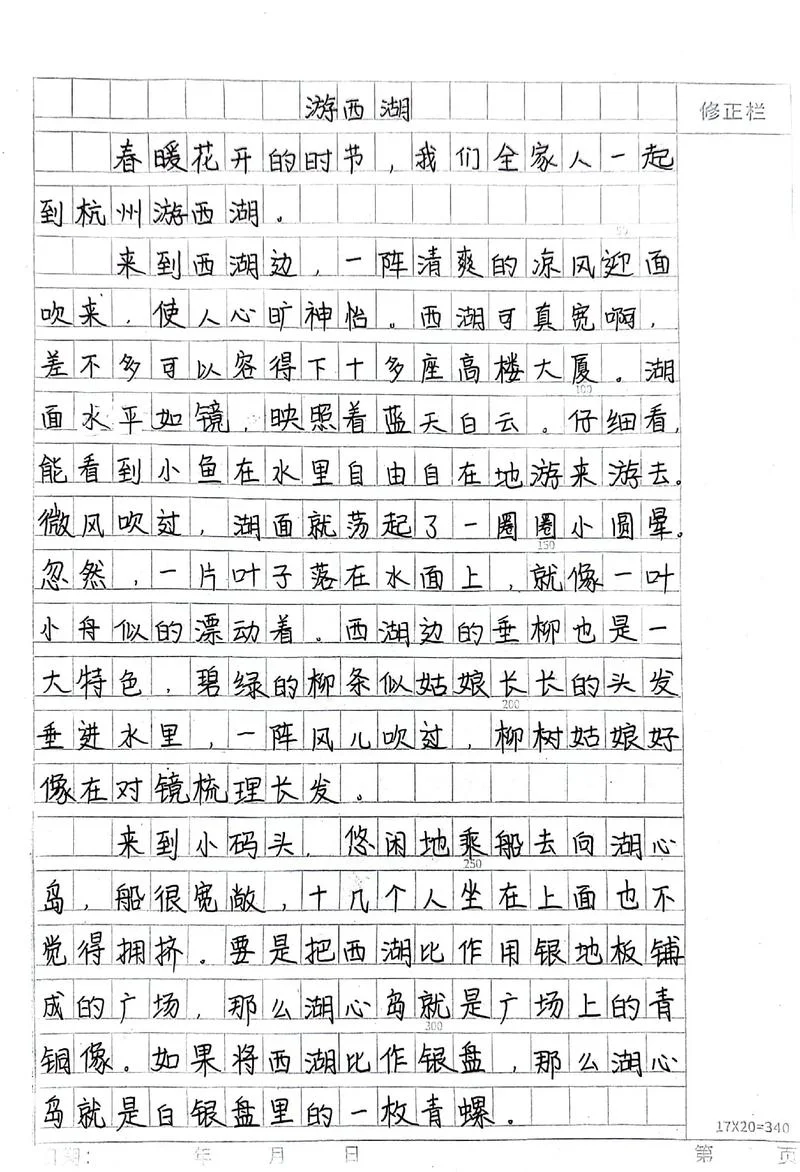 游西湖
修正栏
春暖花开的时节，我们全家人一起
到杭州游西湖。
50
来到西湖边，一阵清爽的凉风迎面
吹来，使人心旷神怡。西湖可真宽啊，
差不多可以容得下十多座高楼大厦。湖
100
面水平如镜，映照着蓝天白云。仔细看，
能看到小鱼在水里自由自在地游来游去。
微风吹过，湖面就荡起了一圈圈小圆晕。
150
忽然，一片叶子落在水面上，就像一叶
小舟似的漂动着。西湖边的垂柳也是一
大特色，碧绿的柳条似姑娘长长的头发
200
垂进水里，一阵风儿吹过，柳树姑娘好
像在对镜梳理长发。
来到小码头，悠闲地乘船去向湖心
250
岛，船很宽敞，十几个人坐在上面也不
觉得拥挤。要是把西湖比作用银地板铺
成的广场，那么湖心岛就是广场上的青
300
铜像。如果将西湖比作银盘，那么湖心
岛就是白银盘里的一枚青螺。
17X20=340
日期： 年 月 日 第 页